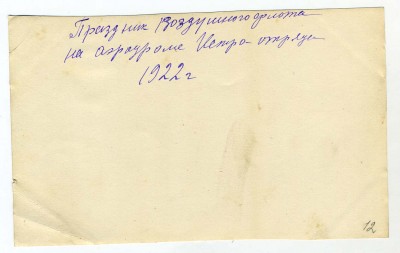 Праздник Воздушного флота
на аэродроме Истро-отряда
1922 г
12